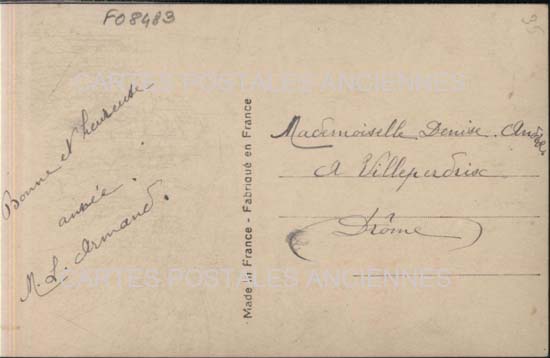 F08483
95
CARTES POSTALES ANCIENNES
Bonne et heureuse
année.
M. L. Armand.
Made in France - Fabriqué en France
Mademoiselle Denise André
A Villeperdrix
(Drôme)
CARTES POSTALES ANCIENNES